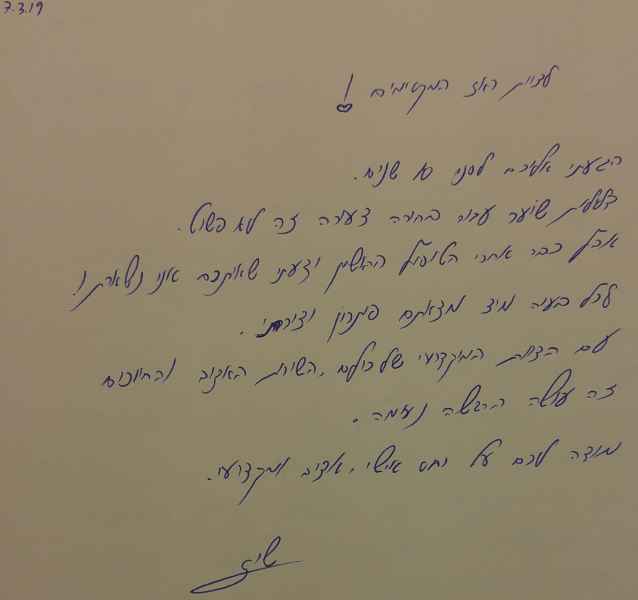 7.3.19
לצוות האז המקסימים !
הגעתי אליכם לפני 10 שנים.
דלילות שיער עבור בחורה צעירה זה לא פשוט.
אבל כבר אחרי הטיפול הראשון ידעתי שאיתכם אני נשארת !.
לכל בעיה מיד מצאתם פיתרון יצירתי.
עם הצוות המקצועי שלכולם, השירות האדיב והחיוכים
זה עושה הרגשה נעימה.
מודה לכם על יחס אישי, אדיב ומקצועי.